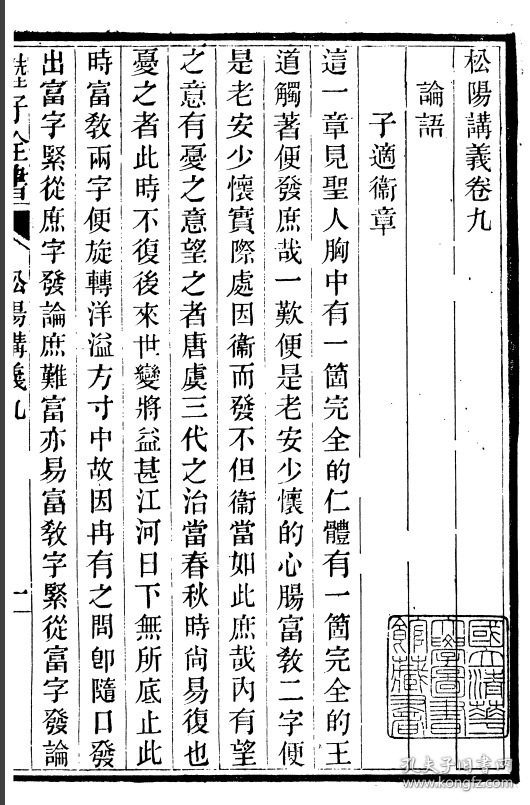 松陽講義卷九
論語
子適衞章
這一章見聖人胸中有一箇完全的仁體有一箇完全的王
道觸著便發庶哉一歎便是老安少懷的心腸富敎二字便
是老安少懷實際處因衞而發不但衞當如此庶哉內有望
之意有憂之意望之者唐虞三代之治當春秋時尙易復也
憂之者此時不復後來世變將益甚江河日下無所底止此
時富敎兩字便旋轉洋溢方寸中故因冉有之問卽隨口發
出富字緊從庶字發論庶難富亦易富敎字緊從富字發論
陸子全書
松陽講義九
一
國立清華
大學圖書
館藏書
孔夫子旧书网
www.kongfz.com